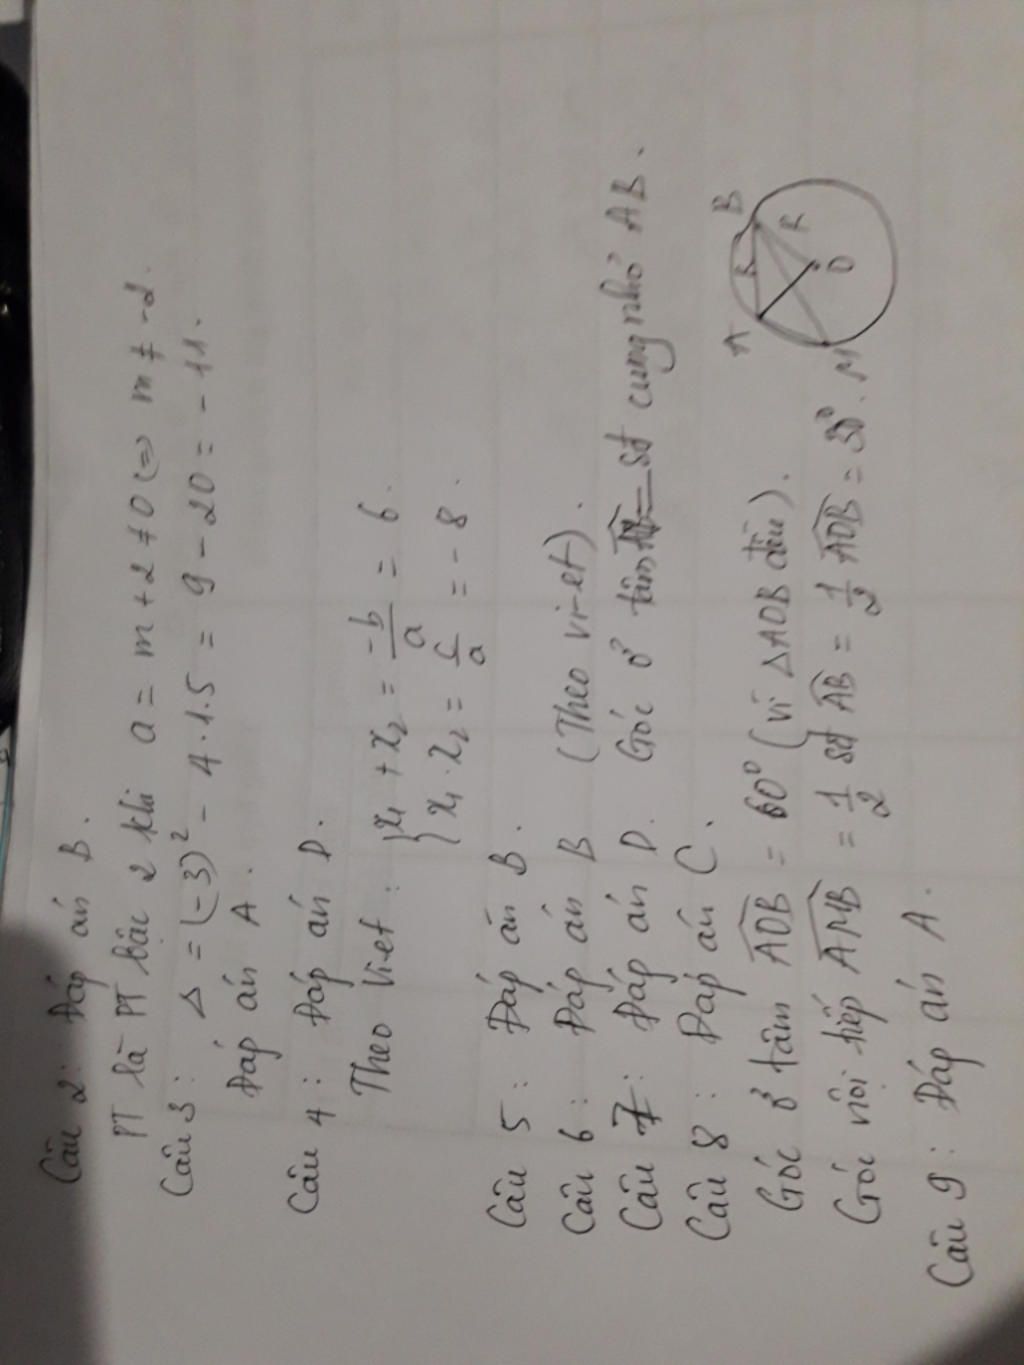 Câu 2: Đáp án B.
PT là PT bậc 2 khi a = m + 2 ≠ 0 (=) m ≠ -2.
Câu 3: Δ = (-3)² - 4.1.5 = 9 - 20 = -11.
Đáp án A.
Câu 4: Đáp án D.
Theo Viet: { x₁ + x₂ = -b/a = 6.
{ x₁ . x₂ = c/a = -8.
Câu 5: Đáp án B.
Câu 6: Đáp án B (Theo vi-et).
Câu 7: Đáp án D. Góc ở tâm AB = sđ cung nhỏ AB.
Câu 8: Đáp án C.
Góc ở tâm AOB = 60⁰ (vì ΔAOB đều).
Góc nội tiếp AMB = 1/2 sđ AB = 1/2 AOB = 30⁰.
A B
R R
O
M
Câu 9: Đáp án A.